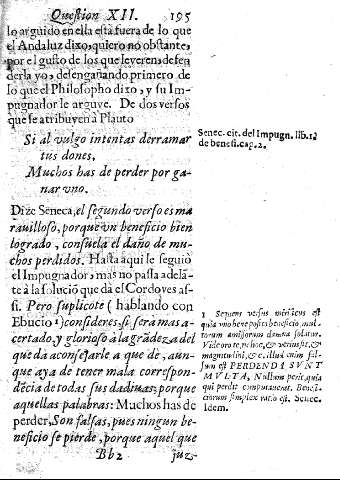 Question XII. 195
lo arguido en ella està fuera de lo que
el Andaluz dixo, quiero no obstante,
por el gusto de los que leyeren, defen
derla yo, desengañando primero de
lo que el Philosopho dixo, y su Im-
pugnador le arguye. De dos versos
que se atribuyen a Plauto
Si al vulgo intentas derramar
tus dones,
Muchos has de perder por ga-
nar vno.
Dize Seneca, el segundo verso es ma
rauilloso, porque vn beneficio bien
logrado, consuela el daño de mu-
chos perdidos. Hasta aqui le seguiò
el Impugnador, mas no passa adelã-
te à la soluciõ que dà el Cordoves as-
si. Pero suplicote (hablando con
Ebucio 1) consideres, si serà mas a-
certado, y glorioso à la grãdeza del
que dà aconsejarle a que dè, aun-
que aya de tener mala correspon-
dẽcia de todas sus dadiuas, porque
aquellas palabras: Muchos has de
perder, Son falsas, pues ningun be-
neficio se pierde, porque aquel que
Bb2 juz-
Senec. cit. del Impugn. lib. 1.
de benefi. cap. 2.
1 Sequens versus mirificus est
quia vno bene posito beneficio, mul-
torum amissorum damna solatur.
Vide oro te, ne hoc, & verius sit, &
magnitudini, &c. illud enim fal-
sum est PERDENDA SVNT
MVLTA, Nullum perit, quia
qui perdit computauerat. Benefi-
ciorum simplex ratio est. Senec.
Idem.